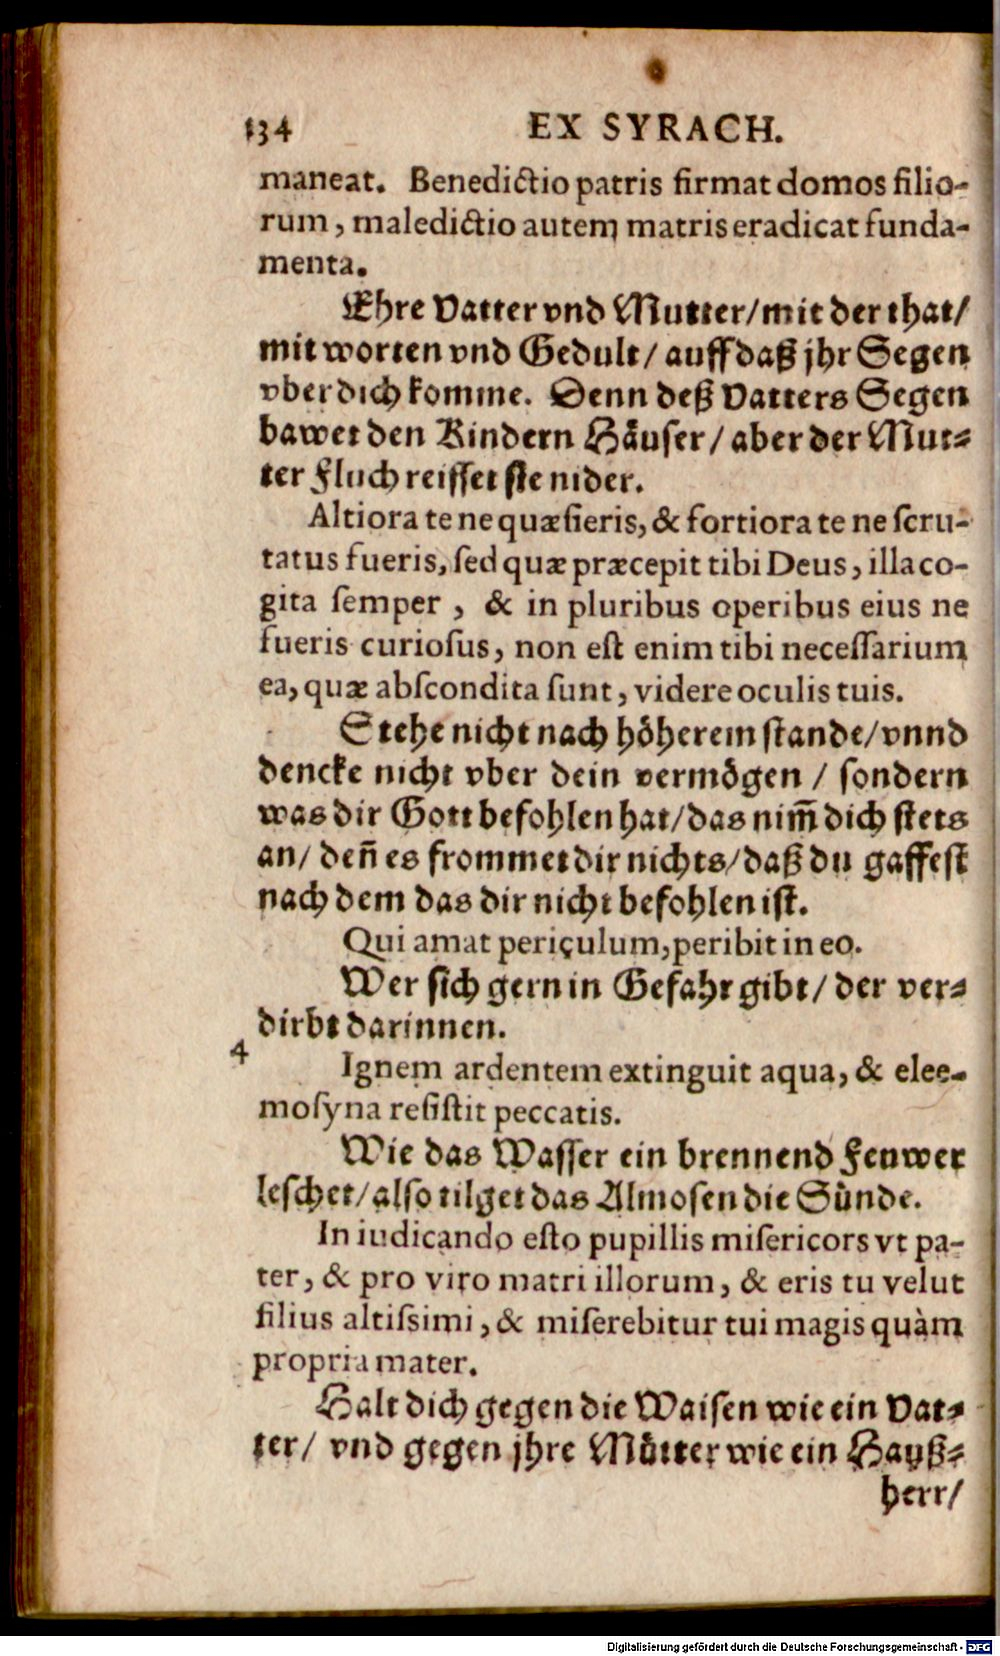 134 EX SYRACH.
maneat. Benedictio patris firmat domos filio-
rum, maledictio autem matris eradicat funda-
menta.
Ehre Vatter vnd Mutter/mit der that/
mit worten vnd Gedult/ auff daß jhr Segen
vber dich komme. Denn deß Vatters Segen
bawet den Kindern Häuser/ aber der Mut-
ter Fluch reisset sie nider.
Altiora te ne quæsieris, & fortiora te ne scru-
tatus fueris, sed quæ præcepit tibi Deus, illa co-
gita semper, & in pluribus operibus eius ne
fueris curiosus, non est enim tibi necessarium
ea, quæ abscondita sunt, videre oculis tuis.
Stehe nicht nach höherem stande/vnnd
dencke nicht vber dein vermögen / sondern
was dir Gott befohlen hat/das nim̃ dich stets
an/ deñ es frommet dir nichts/daß du gaffest
nach dem das dir nicht befohlen ist.
Qui amat periculum, peribit in eo.
Wer sich gern in Gefahr gibt/ der ver-
dirbt darinnen.
4
Ignem ardentem extinguit aqua, & elee-
mosyna resistit peccatis.
Wie das Wasser ein brennend Feuwer
leschet/also tilget das Almosen die Sünde.
In iudicando esto pupillis misericors vt pa-
ter, & pro viro matri illorum, & eris tu velut
filius altissimi, & miserebitur tui magis quàm
propria mater.
Halt dich gegen die Waisen wie ein Vat-
ter/ vnd gegen jhre Mütter wie ein Hauß-
herr/
Digitalisierung gefördert durch die Deutsche Forschungsgemeinschaft - DFG